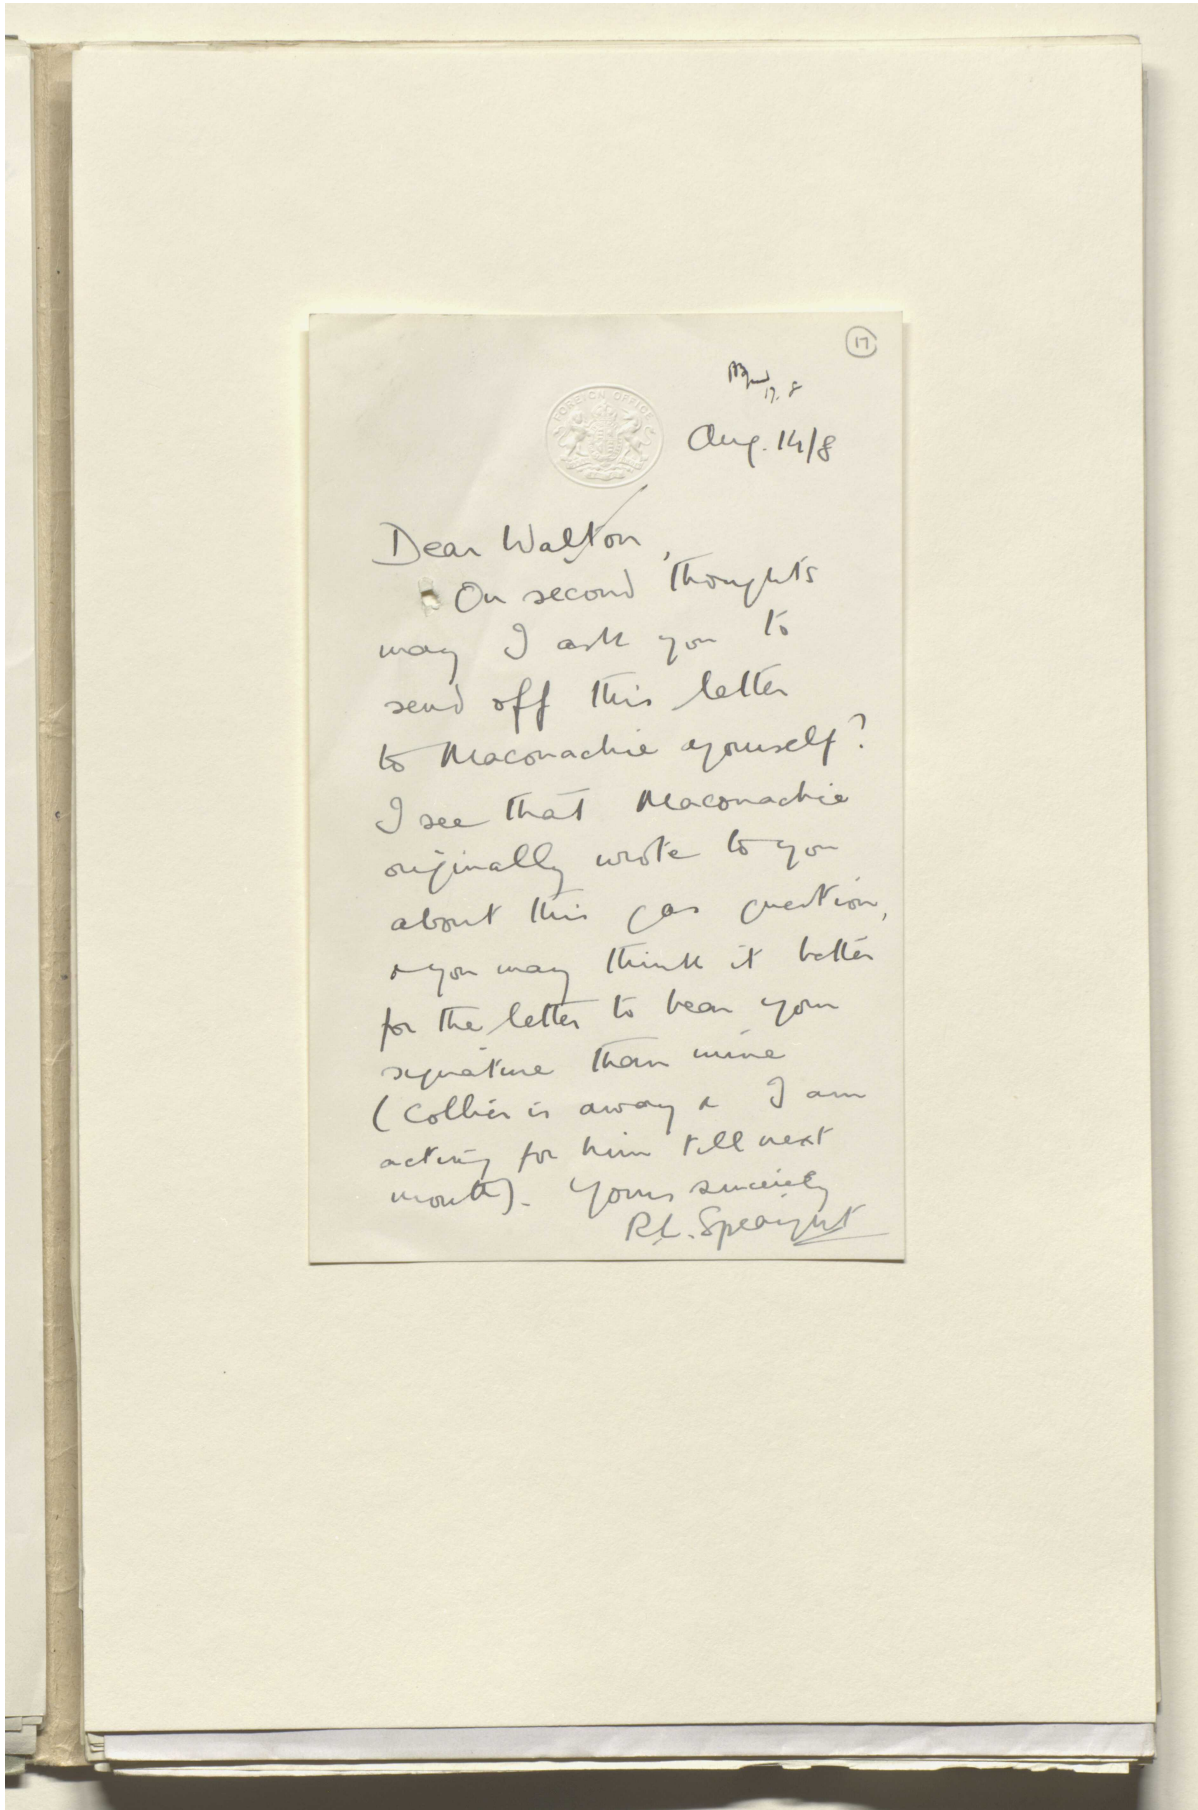 17
17. 8
FOREIGN OFFICE
Aug. 14/8
Dear Walton,
On second thoughts
may I ask you to
send off this letter
to Maconachie yourself?
I see that Maconachie
originally wrote to you
about this gas question,
& you may think it better
for the letter to bear your
signature than mine
(Collier is away & I am
acting for him till next
month). Yours sincerely
R.L. Speaight